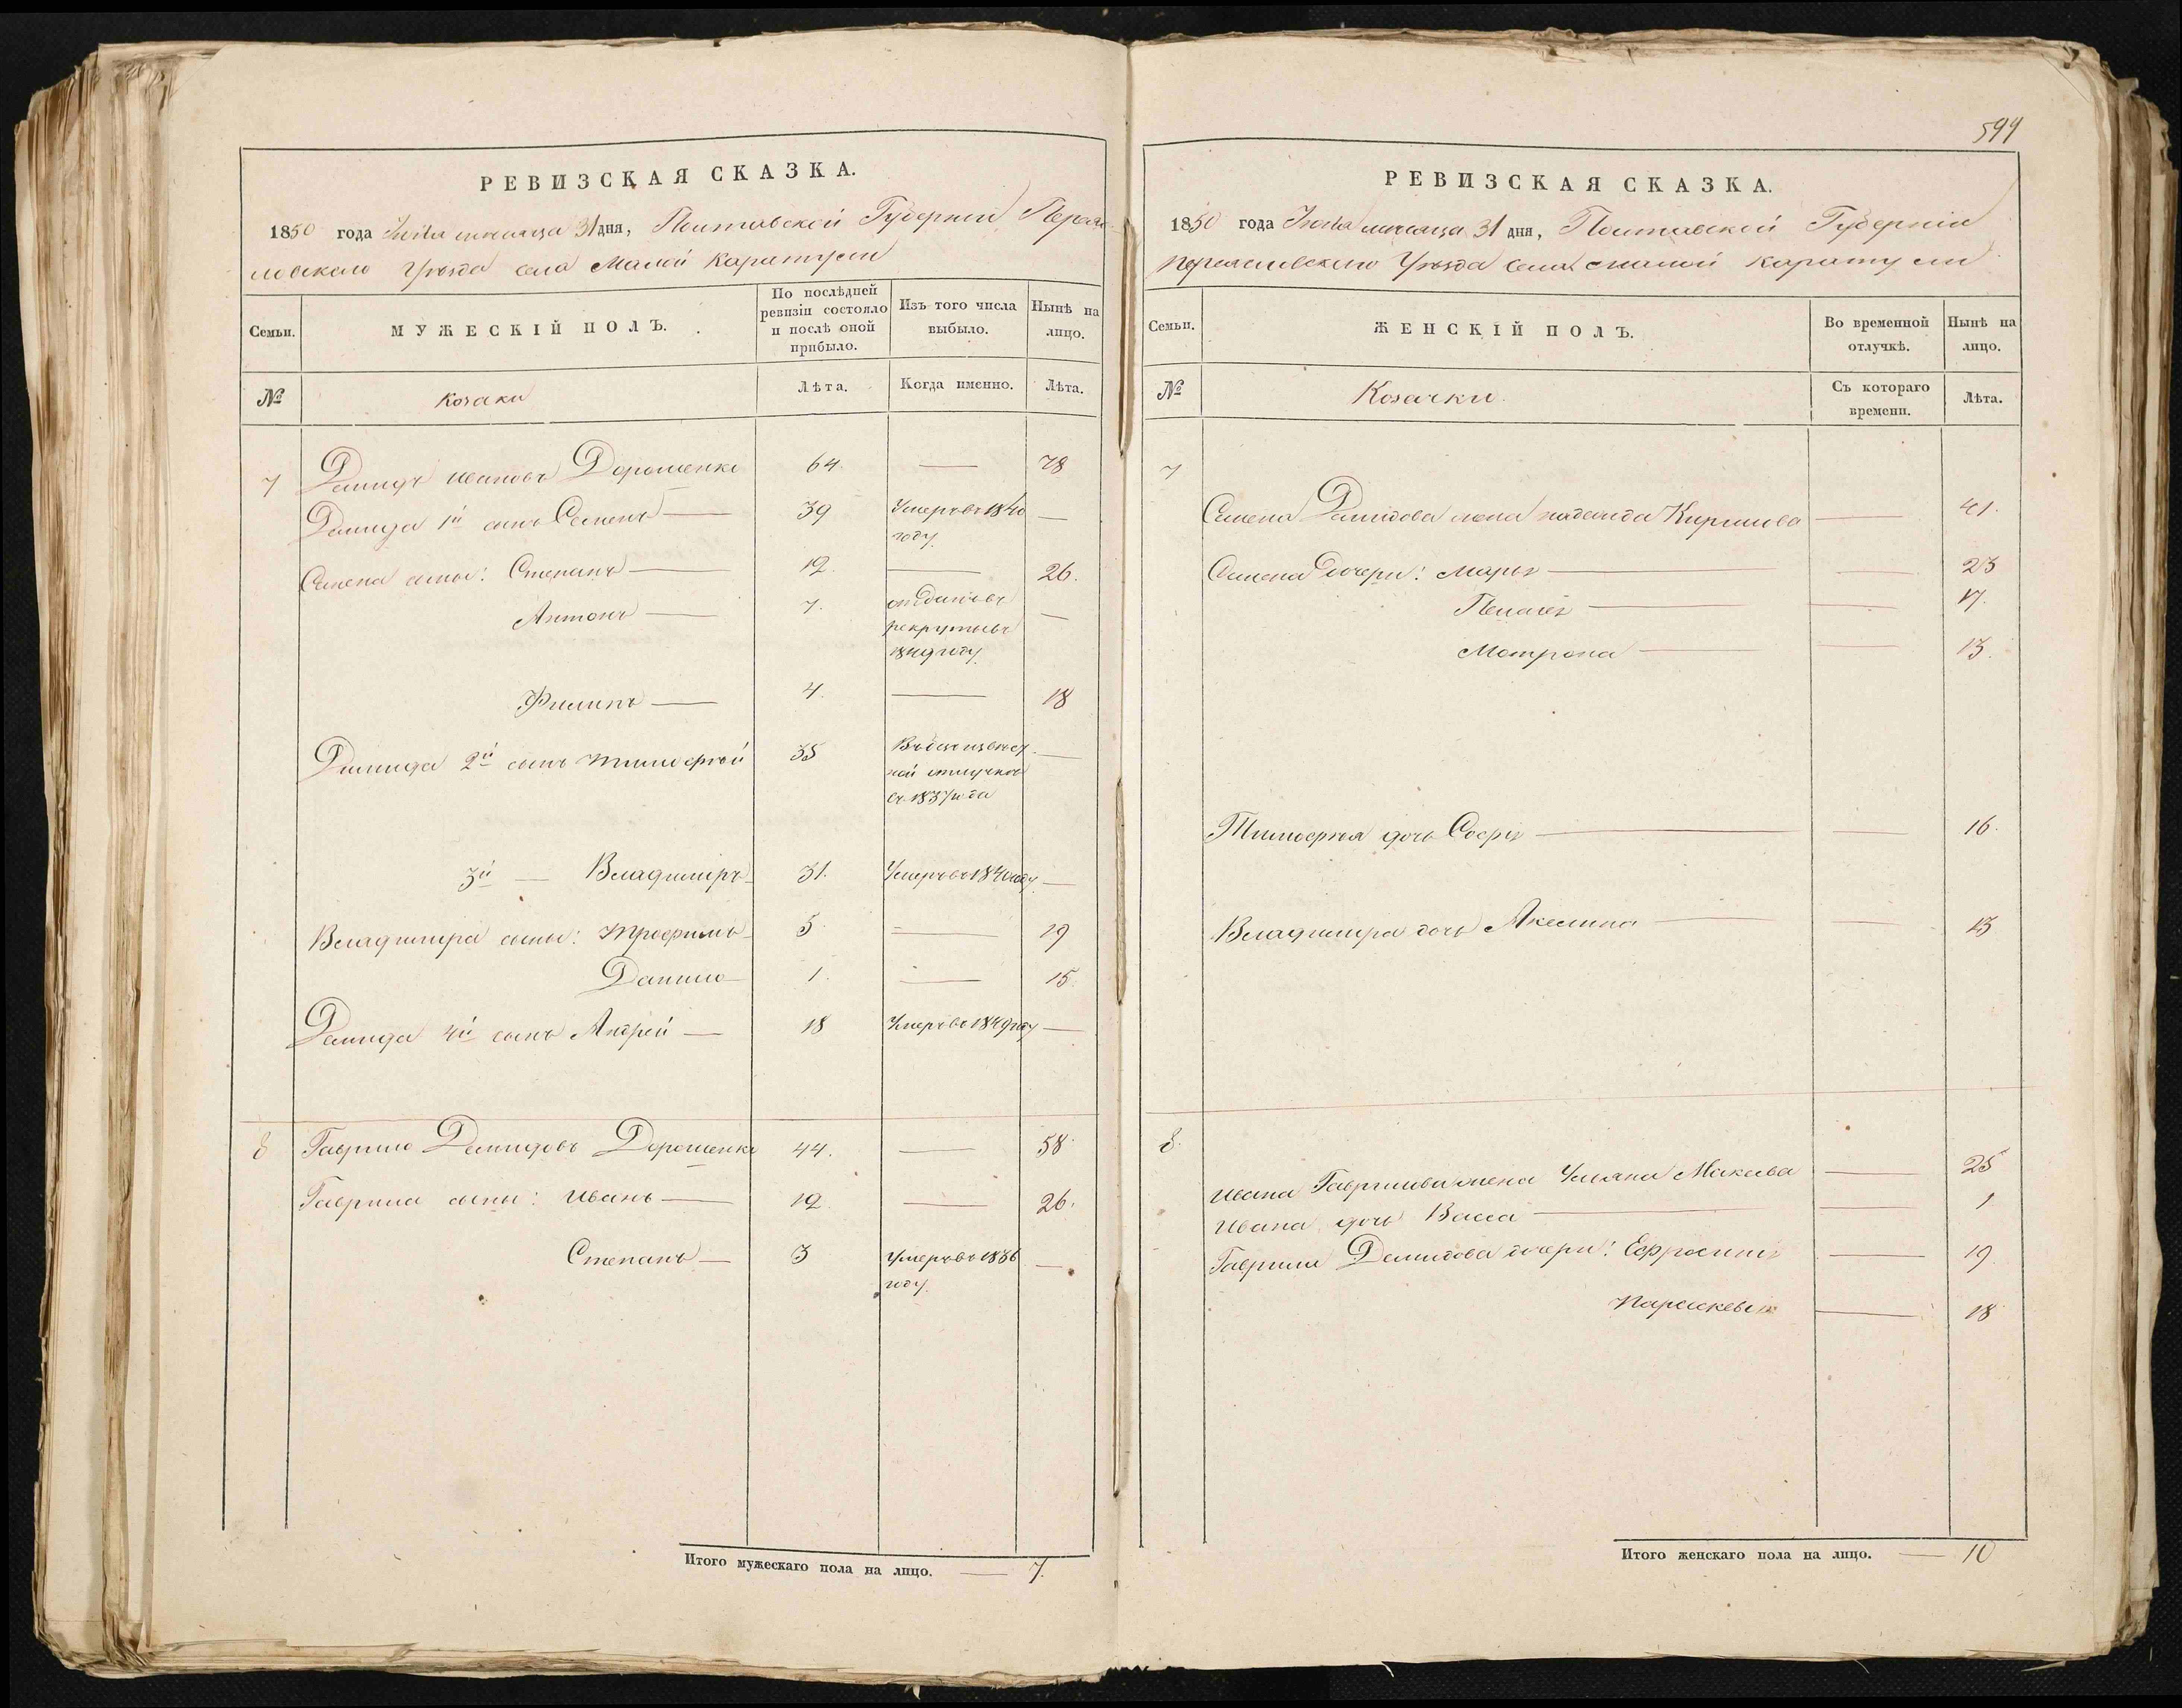 РЕВИЗСКАЯ СКАЗКА.
1850 года Июля месяца 31 дня, Полтавской Губернии Переяс-
ловского Уѣзда села Малой Каратули
Семьи.
МУЖЕСКІЙ ПОЛЪ.
По послѣдней
ревизіи состояло
и послѣ оной
прибыло.
Изъ того числа
выбыло.
Нынѣ на
лицо.
№
Козаки
Лѣта.
Когда именно.
Лѣта.
7 Демидъ Ивановъ Дорошенко 64. — 78
Демида 1й сынъ Семенъ — 39 Умеръ въ 1840 —
году
Семена сыны: Степанъ — 12. — 26.
Антонъ — 7. отданъ въ —
рекруты въ
1849 году
Филипъ — 4. — 18
Демида 2й сынъ Тимофѣй 35 —
отлучкѣ
съ 1837 года
3й — Владимиръ 31. Умеръ въ 1840 году —
Владимира сыны: Трофимъ 5 — 19
Данило 1. — 15.
Демида 4й сынъ Андрей — 18 Умеръ въ 1849 году —
8 Гаврило Демидовъ Дорошенко 44. — 58
Гаврила сыны: Иванъ — 12. — 26.
Степанъ — 3 Умеръ въ 1836 —
году
Итого мужескаго пола на лицо. — 7.
599
РЕВИЗСКАЯ СКАЗКА.
1850 года Июля месяца 31 дня, Полтавской Губерніи
Переясловского Уѣзда села Малой Каратули
Семьи.
ЖЕНСКІЙ ПОЛЪ.
Во временной
отлучкѣ.
Нынѣ на
лицо.
№
Козачки
Съ котораго
времени.
Лѣта.
7
Семена Демидова жена Надежда Кирилова — 41.
Семена дочери: Марья — — 23
Пелагея — — 17.
Мотрона — — 13.
Тимофѣя дочь Софія — 16.
Владимира дочь Акелина — — 13
8.
Ивана Гаврилова жена Ульяна Макеева — 25
Ивана дочь Васса — — 1
Гаврила Демидова дочери: Ефросинія — 19.
Параскевія — 18
Итого женскаго пола на лицо. — 10